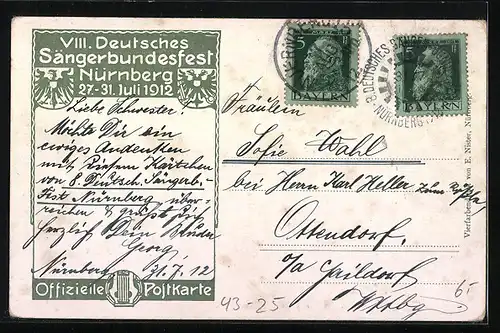 VIII. Deutsches
Sängerbundesfest
Nürnberg
27-31. Juli 1912
Liebe Schwester!
Möchte Dir ein
ewiges Andenken
mit diesem Kärtchen
von 8. Deutsch. Sängerb.
Fest Nürnberg über-
reichen & grüßt Dich
herzlich Dein Bruder
Georg
Nürnberg 31.7.12
Offizielle Postkarte
5 5
BAYERN BAYERN
8. DEUTSCHES SÄNGER
NÜRNBERG
Fräulein
Sofie Wahl
bei Herrn Karl Heller
Ottendorf
o/a Gaildorf
Wttbg
Vierfarbendruck von E. Nister, Nürnberg.
43-25
6.-